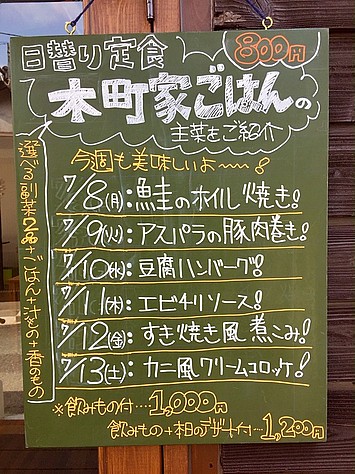 日替り定食
800円
木町家ごはんの
主菜をご紹介
選べる副菜2品+ごはん+汁もの+香のもの
今週も美味しいよ〜〜!
7/8(月):鮭のホイル焼き!
7/9(火):アスパラの豚肉巻き!
7/10(水):豆腐ハンバーグ!
7/11(木):エビチリソース!
7/12(金):すき焼き風煮こみ!
7/13(土):カニ風クリームコロッケ!
※飲みもの付…1,000円
飲みもの+本日のデザート付…1,200円